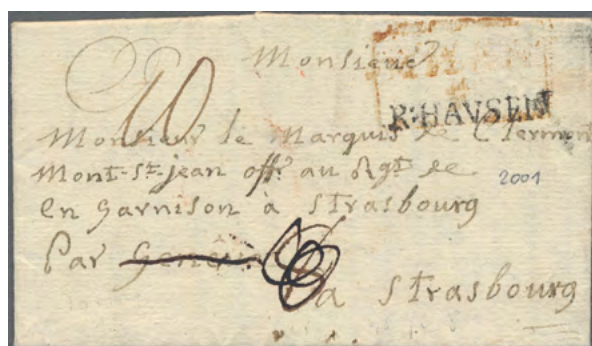 Monsieur
R:HAVSEN
Monsieur le Marquis de Clermon
Mont-St-jean off: au Rgt de
2001
en garnison à strasbourg
Par Genêve
a strasbourg